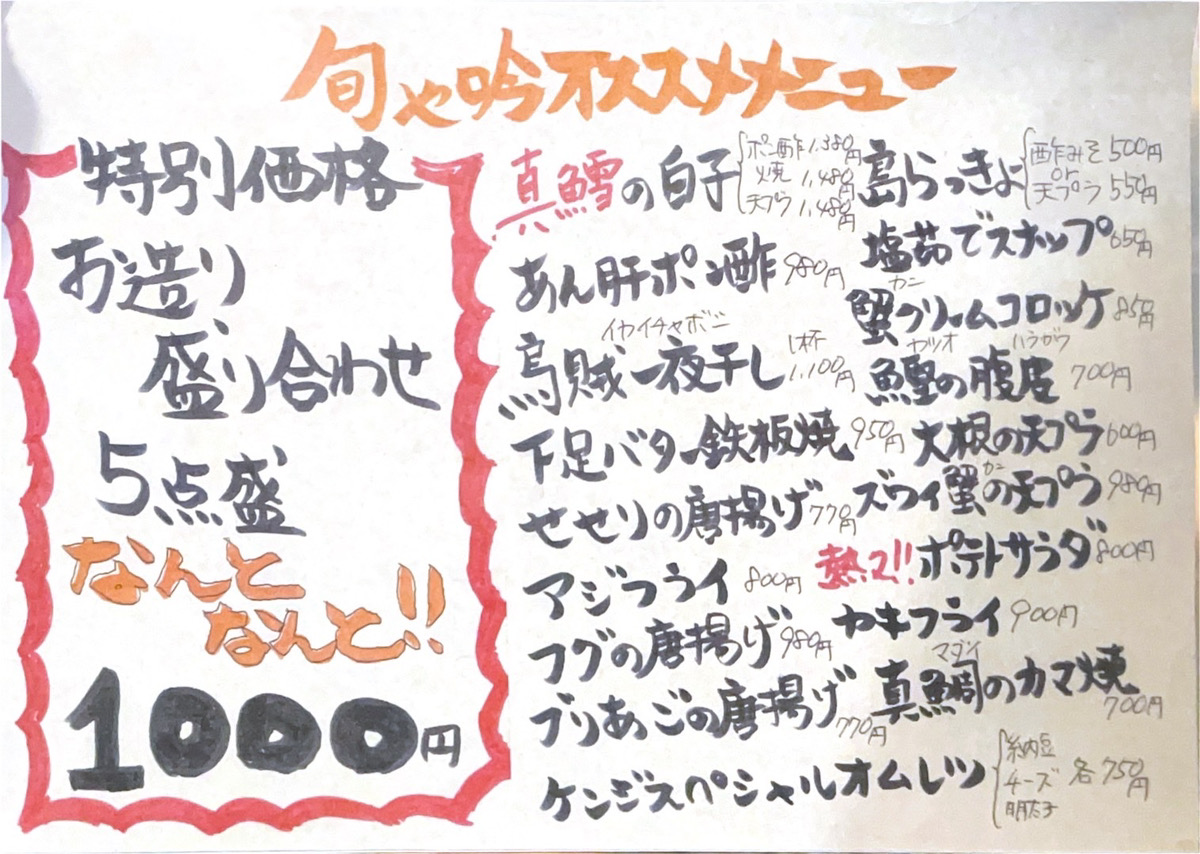 旬や吟オススメメニュー
特別価格
お造り
盛り合わせ
5点盛
なんと
なんと!!
1000円
真鱈の白子 ポン酢 1,380円
焼 1,480円
天プラ 1,480円
あん肝ポン酢 980円
イカイチャボシ
烏賊一夜干し 1杯 1,100円
下足バター鉄板焼 950円
せせりの唐揚げ 770円
アジフライ 800円
フグの唐揚げ 980円
ブリあごの唐揚げ 770円
ケンジスペシャルオムレツ 納豆
チーズ 各750円
明太子
島らっきょ 酢みそ 500円
or
天プラ 550円
塩茹でスナップ 650円
カニ
蟹クリームコロッケ 850円
カツオ ハラガワ
鰹の腹皮 700円
大根の天プラ 600円
カニ
ズワイ蟹の天プラ 980円
熱々!! ポテトサラダ 800円
カキフライ 900円
マダイ
真鯛のカマ焼 700円